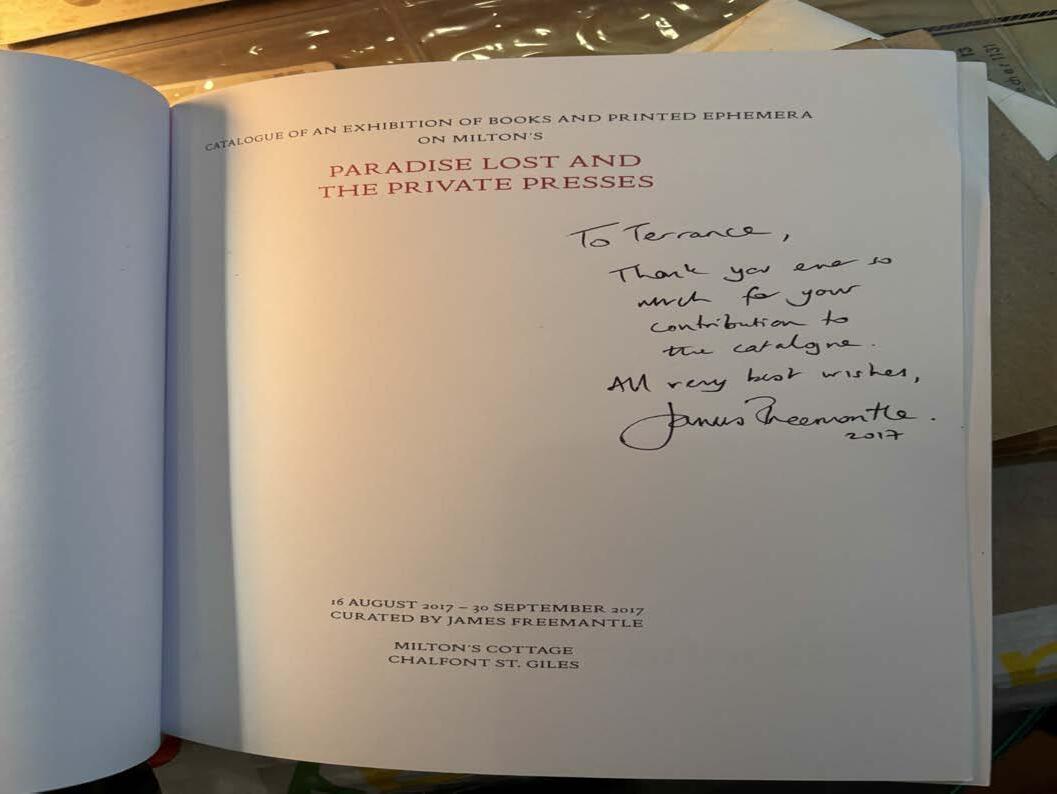 CATALOGUE OF AN EXHIBITION OF BOOKS AND PRINTED EPHEMERA
ON MILTON'S
PARADISE LOST AND
THE PRIVATE PRESSES
To Terrance,
Thank you ever so
much for your
contribution to
the catalogue.
All very best wishes,
James Freemantle.
2017
16 AUGUST 2017 – 30 SEPTEMBER 2017
CURATED BY JAMES FREEMANTLE
MILTON'S COTTAGE
CHALFONT ST. GILES